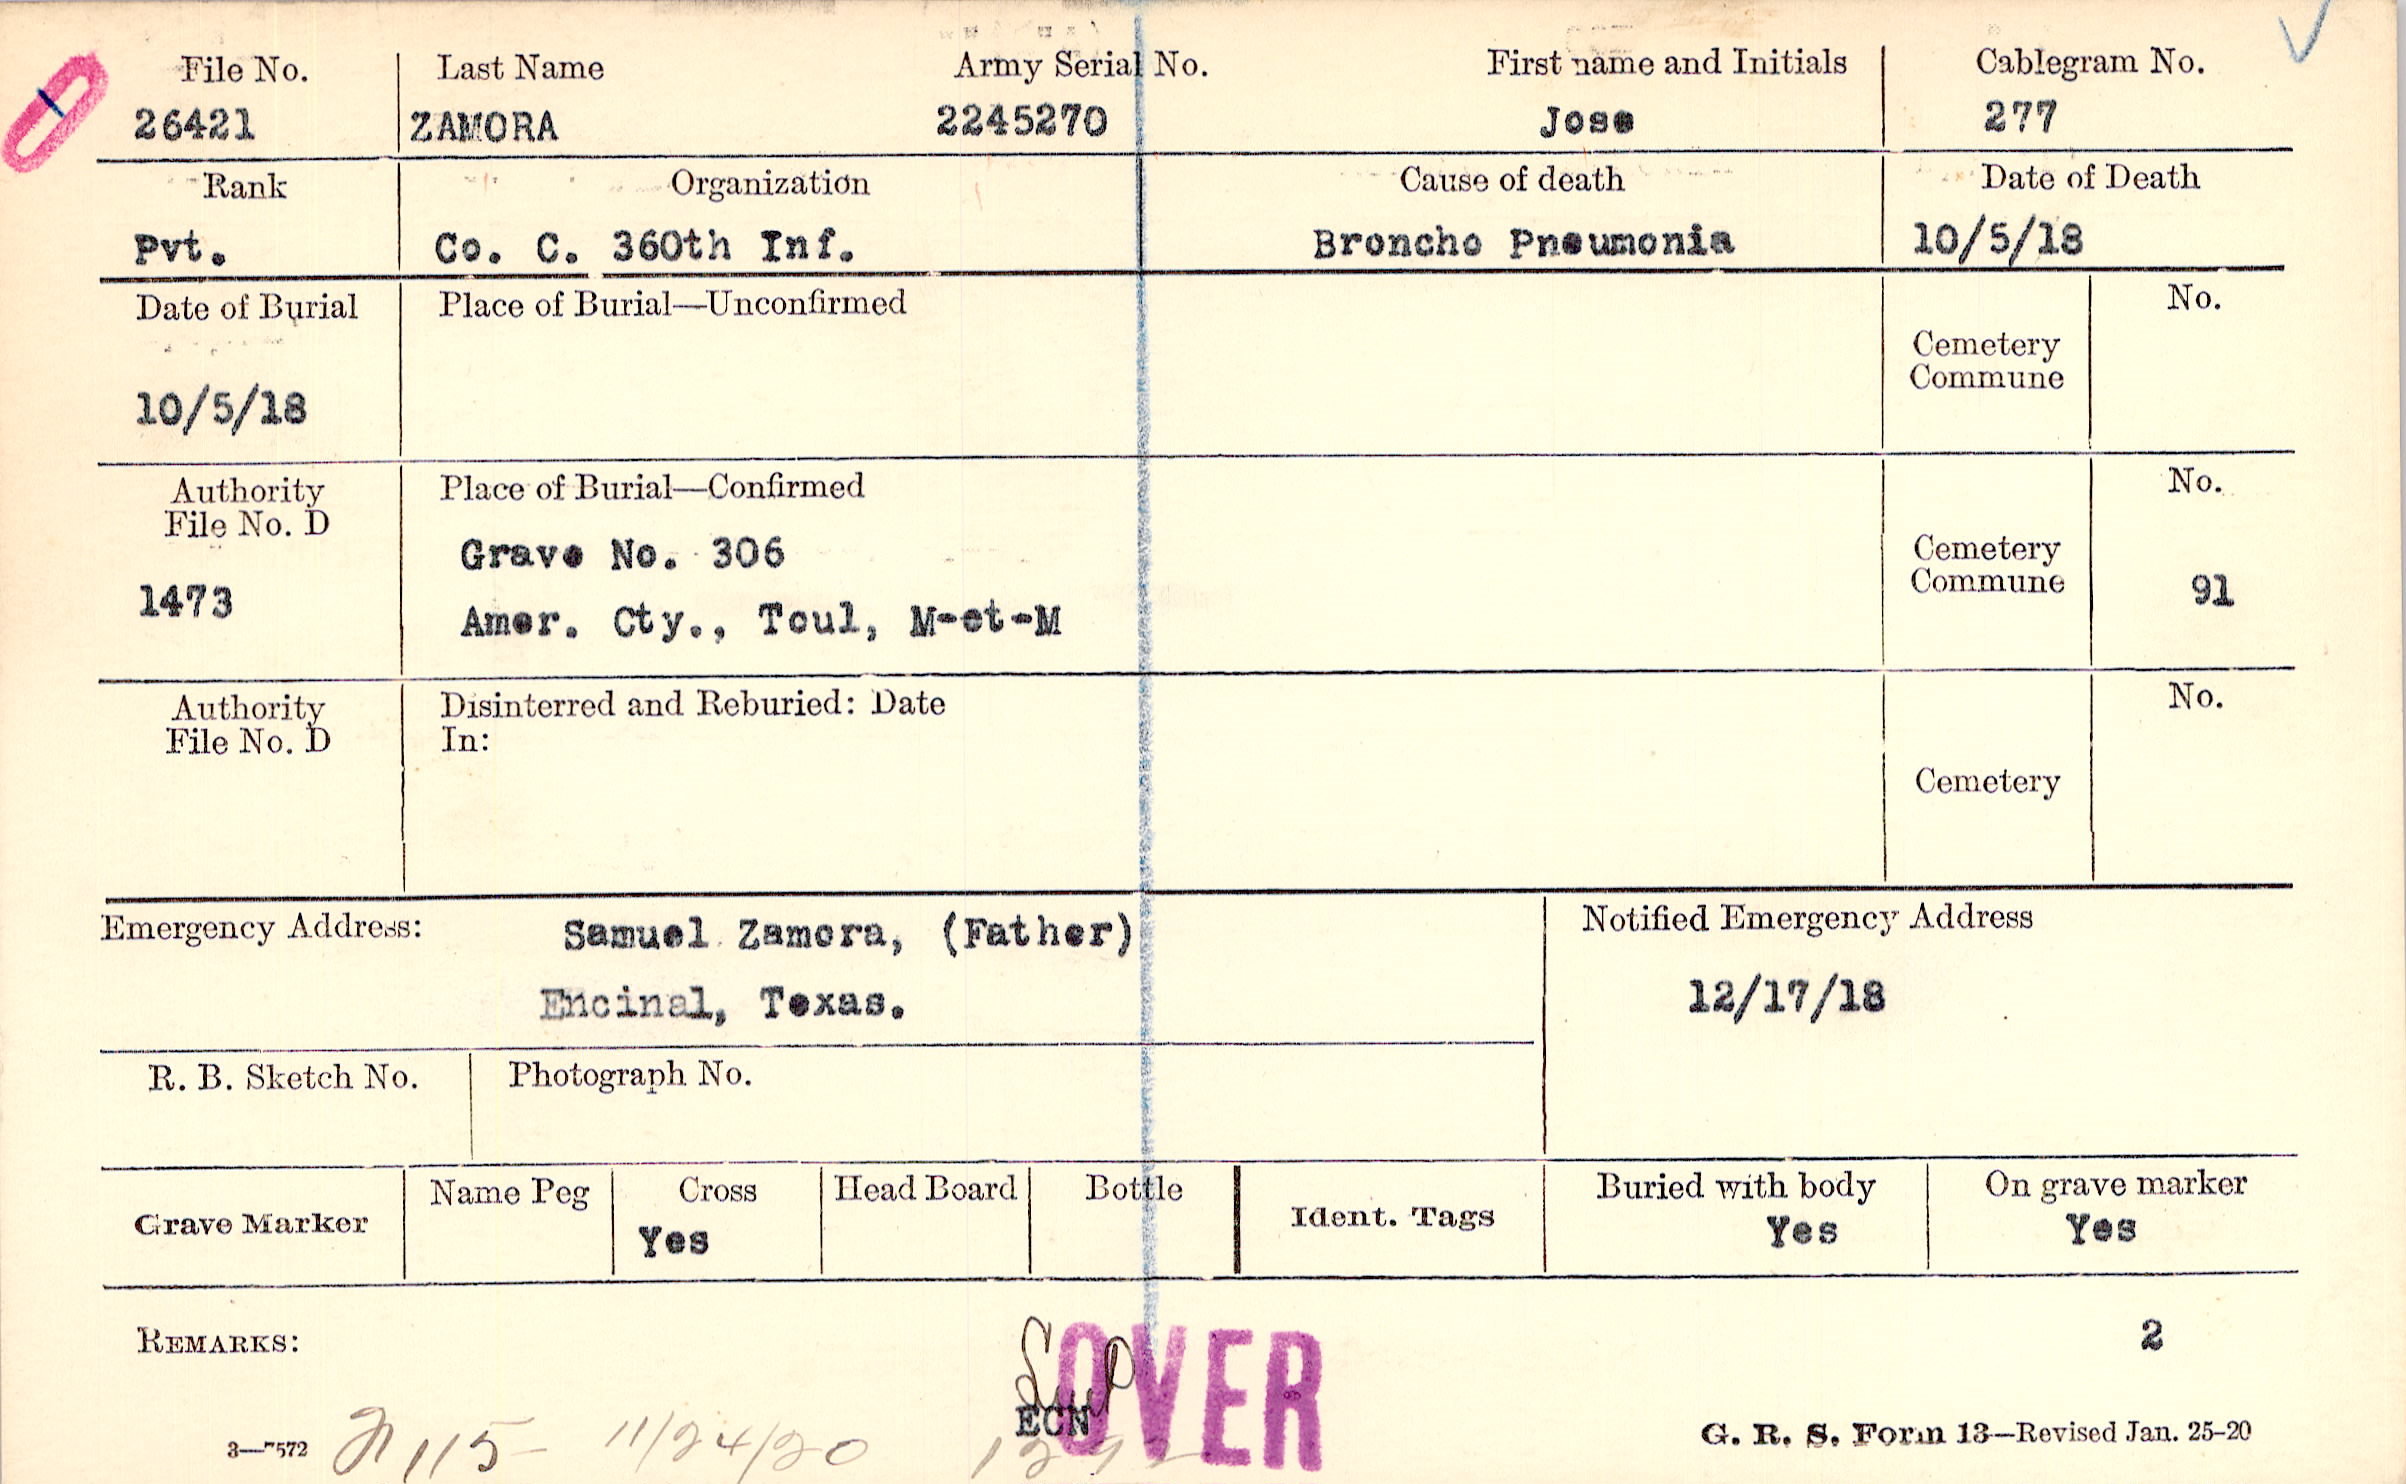 File No. Last Name Army Serial No. First name and Initials Cablegram No.
26421 ZAMORA 2245270 Jose 277
Rank Organization Cause of death Date of Death
Pvt. Co. C. 360th Inf. Broncho Pneumonia 10/5/18
Date of Burial Place of Burial—Unconfirmed No.
Cemetery
Commune
10/5/18
Authority Place of Burial—Confirmed No.
File No. D
Grave No. 306 Cemetery
1473 Commune 91
Amer. Cty., Toul, M-et-M
Authority Disinterred and Reburied: Date No.
File No. D In:
Cemetery
Emergency Address: Samuel Zamora, (Father) Notified Emergency Address
Encinal, Texas. 12/17/18
R. B. Sketch No. Photograph No.
Grave Marker Name Peg Cross Head Board Bottle Ident. Tags Buried with body On grave marker
Yes Yes Yes
REMARKS: 2
OVER
ECN
3—7572 115 11/24/20 G. R. S. Form 13—Revised Jan. 25-20